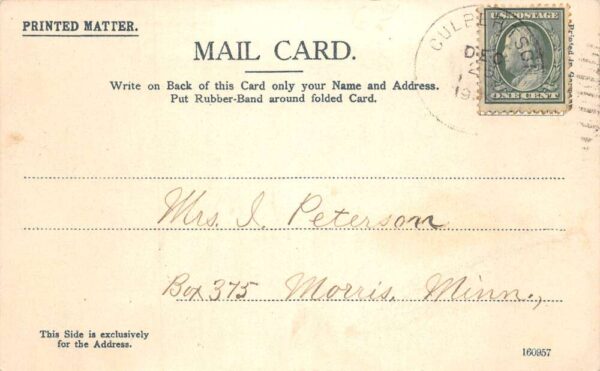 PRINTED MATTER.
MAIL CARD.
Write on Back of this Card only your Name and Address.
Put Rubber-Band around folded Card.
U.S. POSTAGE
ONE CENT
DEC
Mrs. I. Peterson
Box 375 Morris, Minn.,
This Side is exclusively
for the Address.
160957